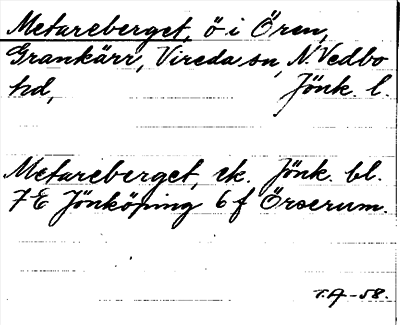 Metareberget, ö i Ören,
Grankärr, Vireda sn, N. Vedbo
hd, Jönk. l.
Metareberget, ek. Jönk. bl.
7E Jönköping 6 f Örserum.
T.A -58.